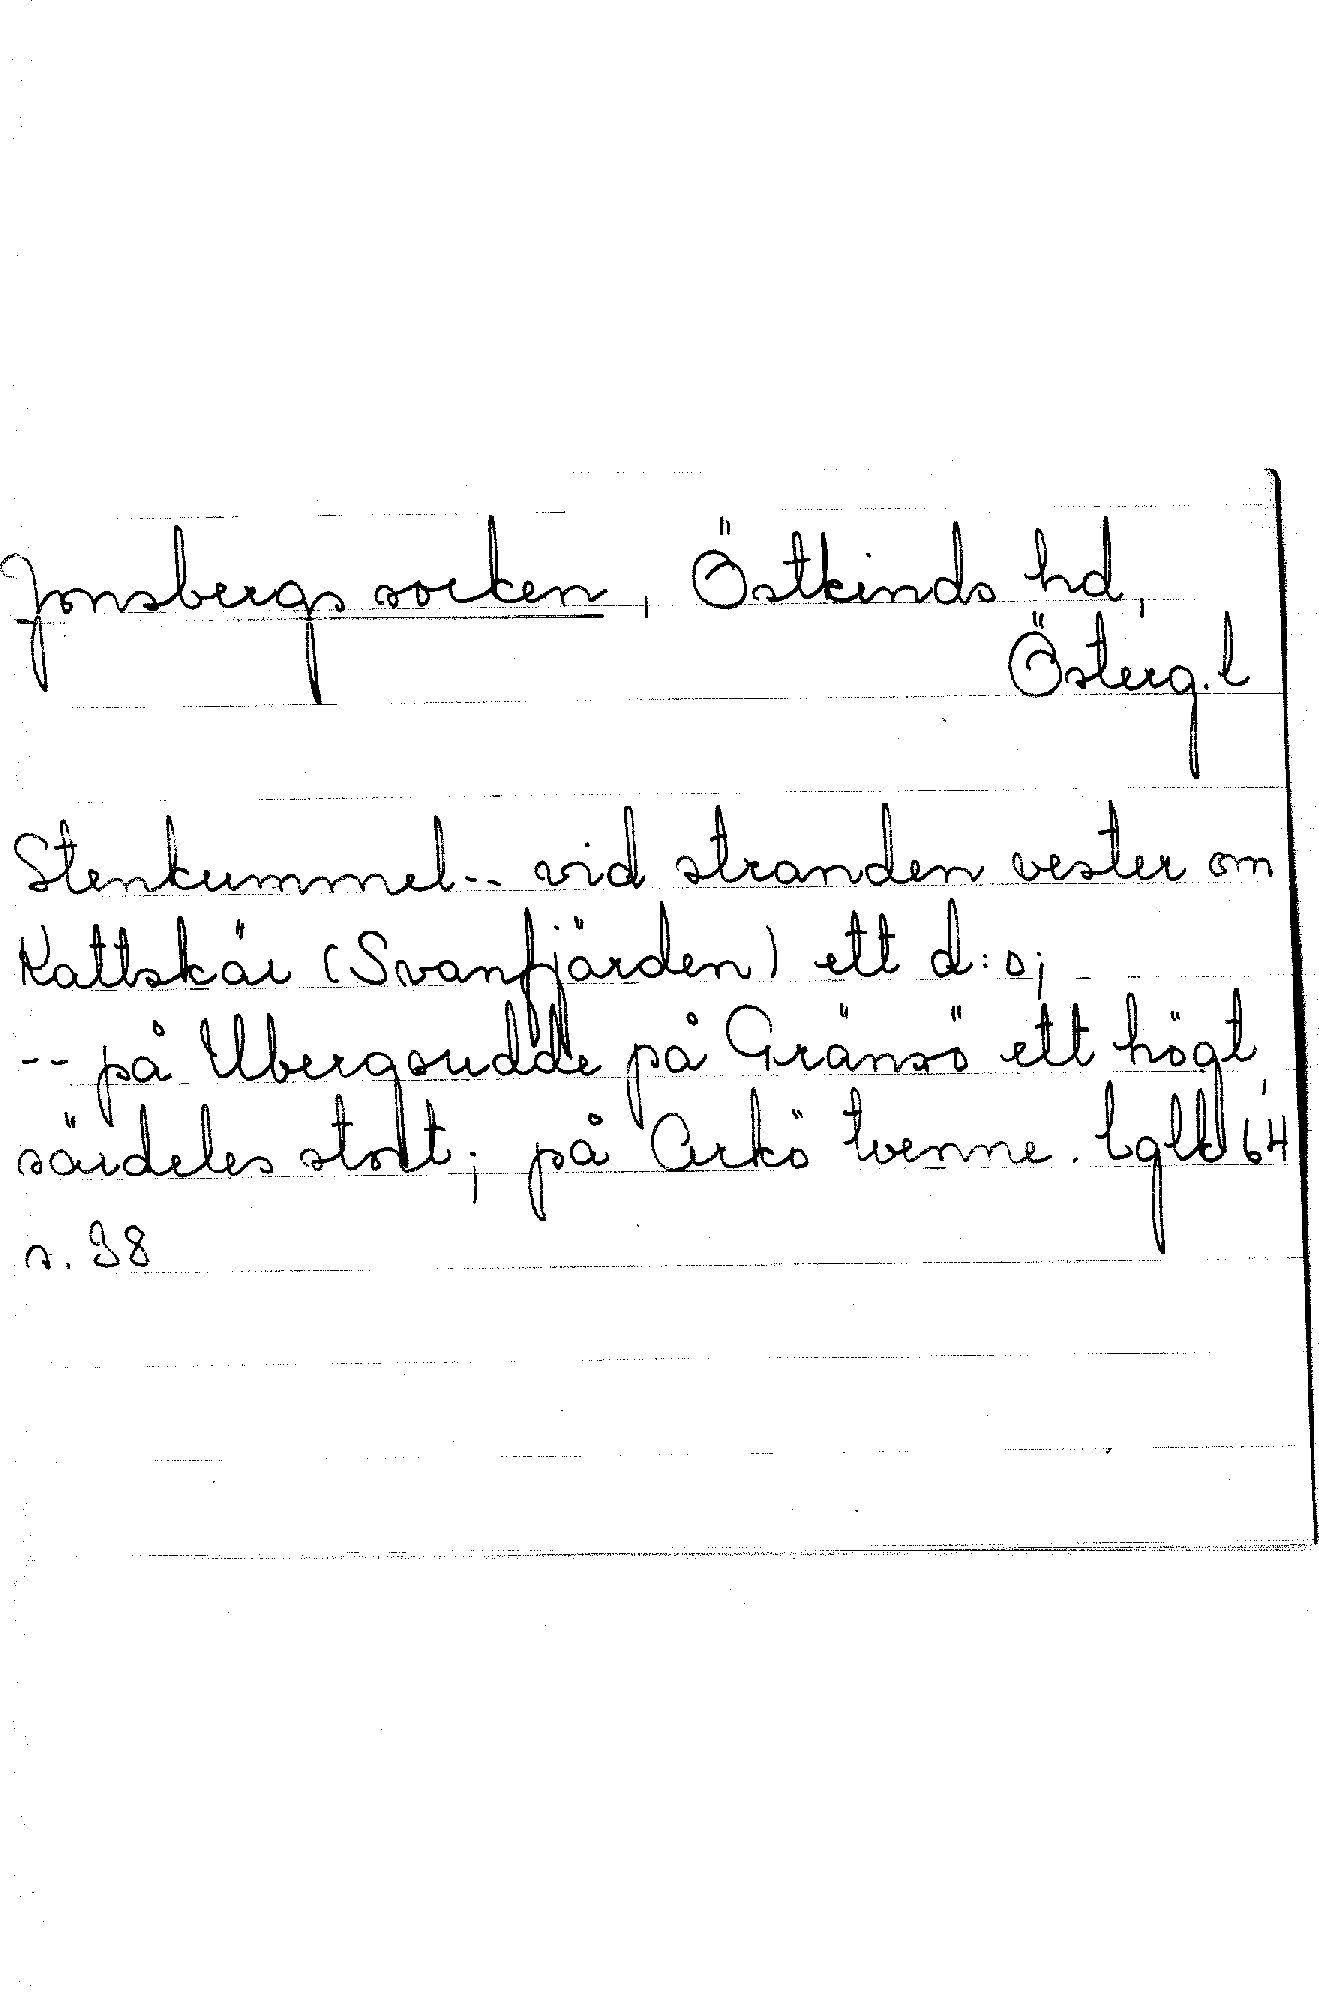 Jonsbergs socken, Östkinds hd,
Österg.l
Stenkummel-- vid stranden vester om
Kattskär (Svanfjärden) ett d:o;
-- på Ubergsudde på Gränsö ett högt,
särdeles stort; på Arkö tvenne. bglk 64
s. 38